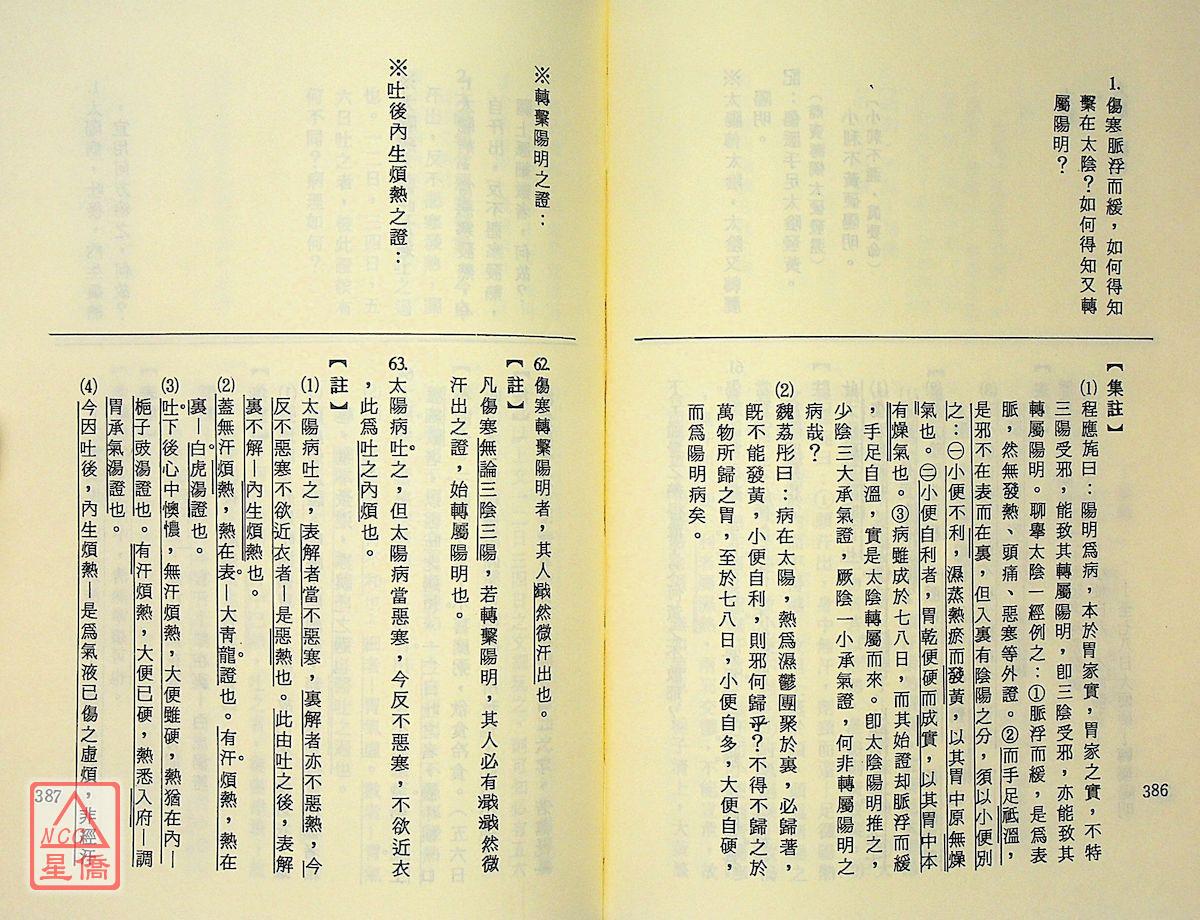 1. 傷寒脈浮而緩，如何得知
繫在太陰？如何得知又轉
屬陽明？
【集註】
⑴程應旄曰：陽明為病，本於胃家實，胃家之實，不特
三陽受邪，能致其轉屬陽明，卽三陰受邪，亦能致其
轉屬陽明。聊舉太陰一經例之：①脈浮而緩，是為表
脈，然無發熱、頭痛、惡寒等外證。②而手足祗溫，
是邪不在表而在裏，但入裏有陰陽之分，須以小便別
之：㊀小便不利，濕蒸熱瘀而發黃，以其胃中原無燥
氣也。㊁小便自利者，胃乾便硬而成實，以其胃中本
有燥氣也。③病雖成於七八日，而其始證却脈浮而緩
，手足自溫，實是太陰轉屬而來。卽太陰陽明推之，
少陰三大承氣證，厥陰一小承氣證，何非轉屬陽明之
病哉？
⑵魏荔彤曰：病在太陽，熱為濕鬱團聚於裏，必歸著，
旣不能發黃，小便自利，則邪何歸乎？不得不歸之於
萬物所歸之胃，至於七八日，小便自多，大便自硬，
而為陽明病矣。
386
※轉繫陽明之證：
※吐後內生煩熱之證：
62. 傷寒轉繫陽明者，其人濈然微汗出也。
【註】
凡傷寒無論三陰三陽，若轉繫陽明，其人必有濈濈然微
汗出之證，始轉屬陽明也。
63. 太陽病吐之，但太陽病當惡寒，今反不惡寒，不欲近衣
，此為吐之內煩也。
【註】
⑴太陽病吐之，表解者當不惡寒，裏解者亦不惡熱，今
反不惡寒不欲近衣者—是惡熱也。此由吐之後，表解
裏不解—內生煩熱也。
⑵蓋無汗煩熱，熱在表—大靑龍證也。有汗煩熱，熱在
裏—白虎湯證也。
⑶吐下後心中懊憹，無汗煩熱，大便雖硬，熱猶在內—
梔子豉湯證也。有汗煩熱，大便已硬，熱悉入府—調
胃承氣湯證也。
⑷今因吐後，內生煩熱—是為氣液已傷之虛煩，非經汗
387
NCC
星僑